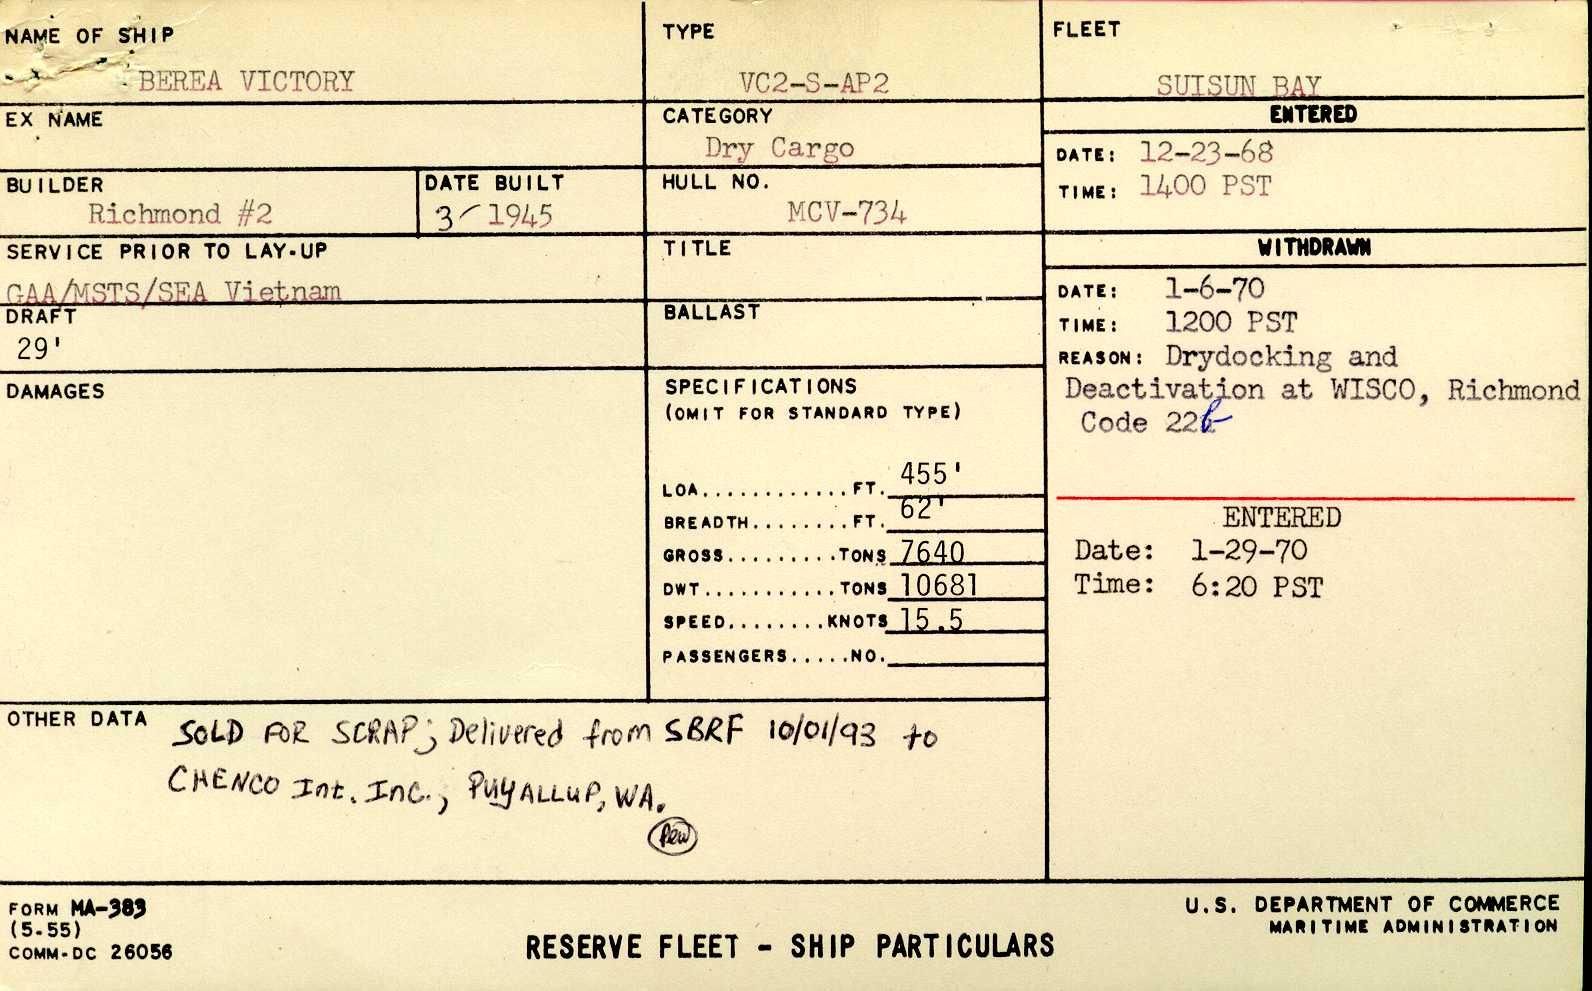 NAME OF SHIP
BEREA VICTORY
TYPE
VC2-S-AP2
FLEET
SUISUN BAY
EX NAME
CATEGORY
Dry Cargo
ENTERED
DATE: 12-23-68
TIME: 1400 PST
BUILDER
Richmond #2
DATE BUILT
3/1945
HULL NO.
MCV-734
SERVICE PRIOR TO LAY-UP
GAA/MSTS/SEA Vietnam
TITLE
WITHDRAWN
DATE: 1-6-70
TIME: 1200 PST
REASON: Drydocking and
Deactivation at WISCO, Richmond
Code 22b
DRAFT
29'
BALLAST
DAMAGES
SPECIFICATIONS
(OMIT FOR STANDARD TYPE)
LOA.............FT. 455'
BREADTH........FT. 62'
GROSS.........TONS 7640
DWT...........TONS 10681
SPEED........KNOTS 15.5
PASSENGERS.....NO.
ENTERED
Date: 1-29-70
Time: 6:20 PST
OTHER DATA
SOLD FOR SCRAP; Delivered from SBRF 10/01/93 to
CHENCO Int. Inc., PUYALLUP, WA.
FORM MA-383
(5-55)
COMM-DC 26056
RESERVE FLEET - SHIP PARTICULARS
U.S. DEPARTMENT OF COMMERCE
MARITIME ADMINISTRATION